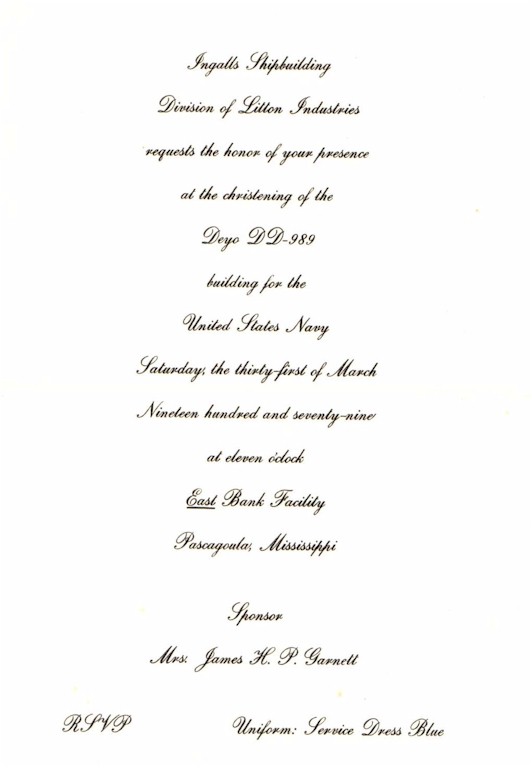 Ingalls Shipbuilding
Division of Litton Industries
requests the honor of your presence
at the christening of the
Deyo DD-989
building for the
United States Navy
Saturday, the thirty-first of March
Nineteen hundred and seventy-nine
at eleven o'clock
East Bank Facility
Pascagoula, Mississippi
Sponsor
Mrs. James H. P. Garnett
RSVP
Uniform: Service Dress Blue